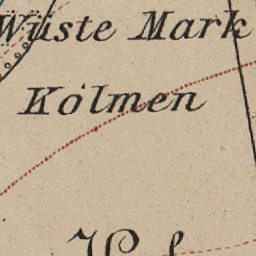 Wüste Mark
Kölmen